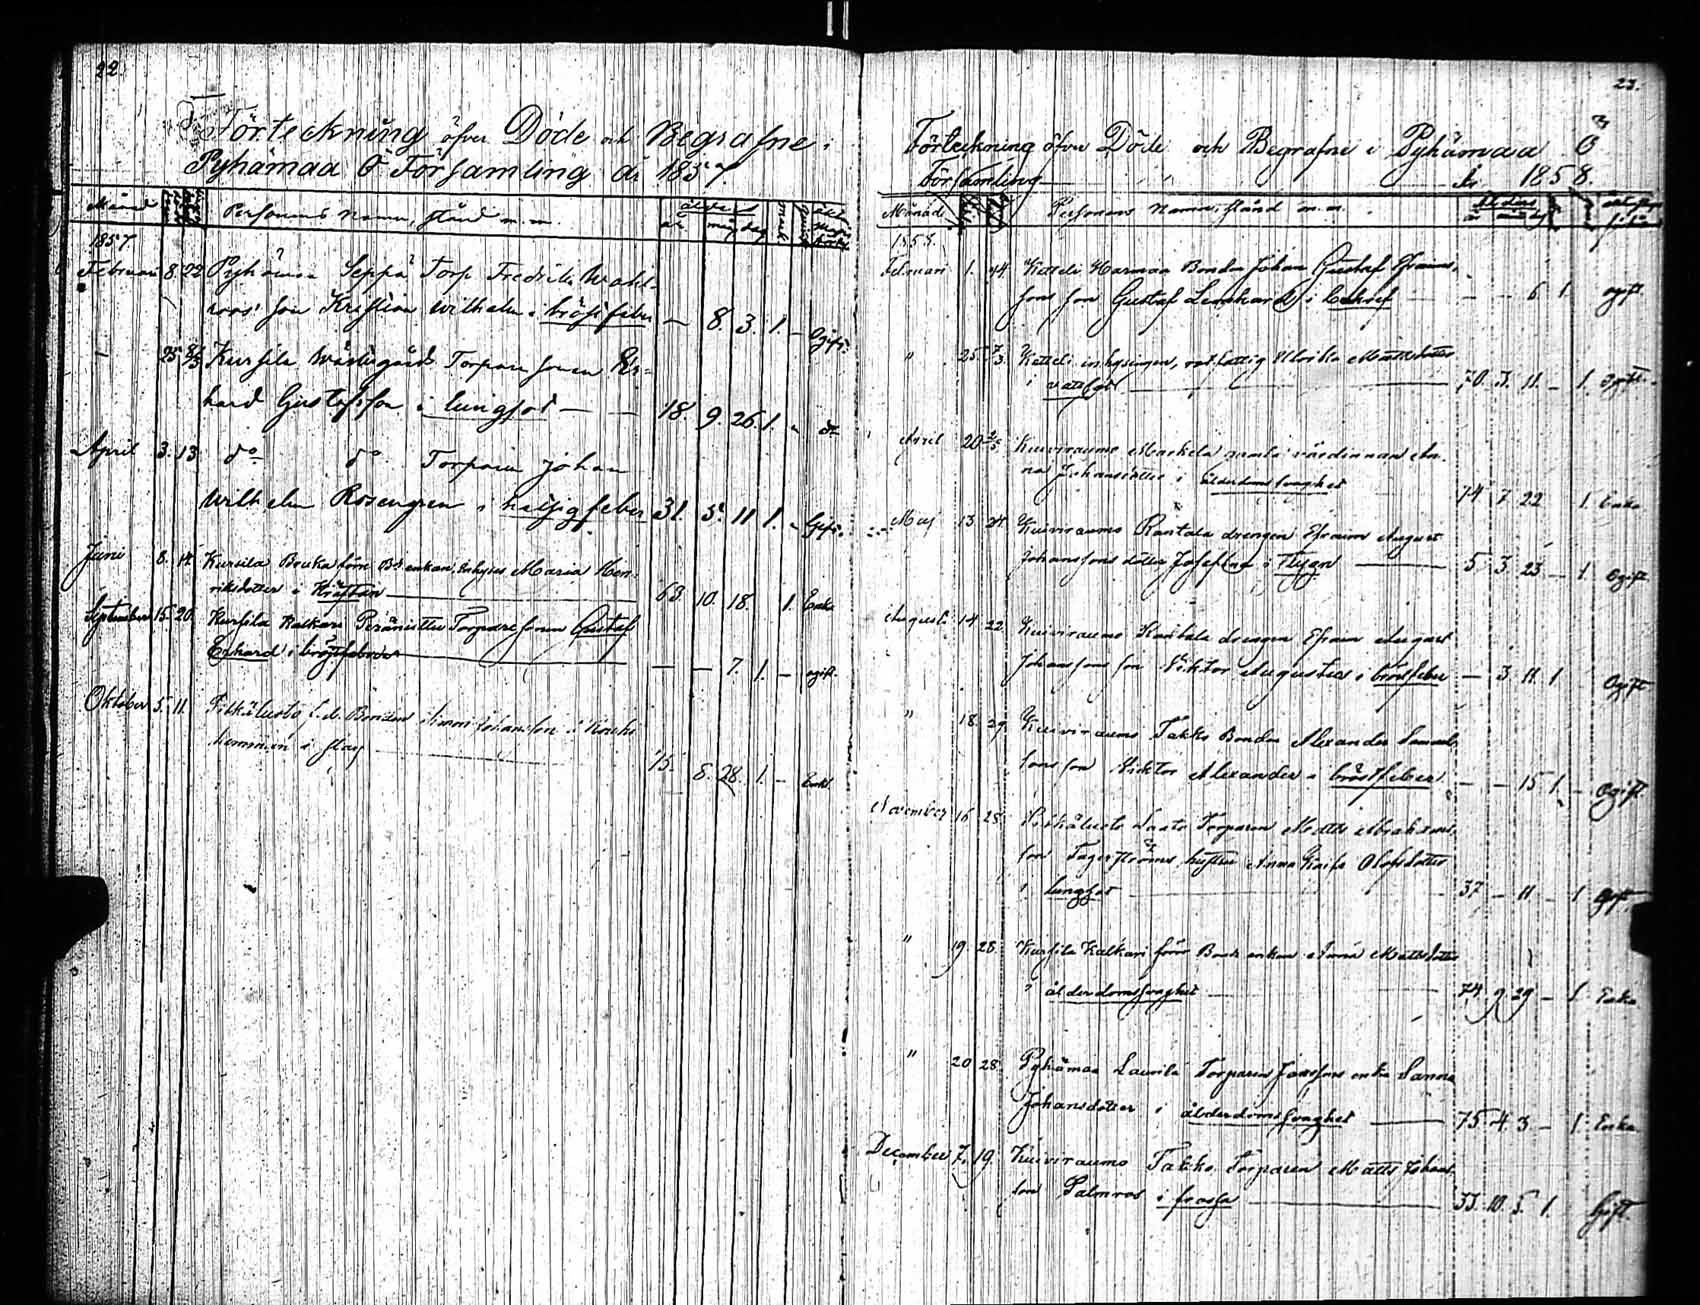 22.
Förteckning öfver Döde och Begrafne i
Pyhämaa Ö Församling år 1857.
Månad Personens Namn, stånd m.m. ålder år mån dag
1857.
Februari 8. 22 Pyhämaa Seppä Torp. Fredrik Wahl-
roos' son Kristian Wilhelm i bröstfeber — 8. 3. 1. — Ogift.
— 25 8/3 Kursila Wästergård Torparesonen Er-
hard Gustafsson i lungsot — — 18. 9. 26. 1. „ do
April 3. 13 do do Torparen Johan
Wilhelm Rosengren i hetsigfeber 31. 5. 11 1. „ Gift.
Juni 8. 14 Kursila Bondeenkan Inhyses Maria Hen-
riksdotter i Kräftan 63 10. 18. 1. Enka
September 15. 20. Kursila Kalkari Torparesonen Gustaf
Erhard i bröstfeber — — 7. 1. — ogift.
Oktober 5. 11. Pitkäluoto f.d. Bonden Simon Johansson
i slag 75. 8. 28. 1. — Enkl.
23.
Förteckning öfver Döde och Begrafne i Pyhämaa Ö
Församling år 1858.
Månad Personens Namn, stånd m.m. Ålder
1858.
Februari 1. 14 Ketteli Harmaa Bonden Johan Gustaf Efraims-
sons son Gustaf Lennhard i — — 6 1. ogift.
" 25 7/3 Ketteli inhysingen, Ulrika Mattsdotter
i vattsot 70. 3. 11. — 1. Ogift.
April 20 2/5 Kuiviraumo Markkela gamla värdinnan An-
na Johansdotter i ålderdomssvaghet 74 7 22 1. Enka
Maj 13 24 Kuiviraumo Rantala drengen Efraim August
Johanssons dotter Josefina i Flygn 5. 3. 23 — 1. Ogift
Augusti 14 22 Kuiviraumo Rantala drengen Efraim August
Johanssons son Viktor Augustus i bröstfeber — 3. 11. 1 Ogift
" 18. 29 Kuiviraumo Takko Bonden Alexander Samuels-
sons son Viktor Alexander i bröstfeber — — 15 1. — Ogift.
November 16 28 Pitkäluoto Torparen Matts Abrahams-
son Fagerströms hustru Anna Kaisa Olofsdotter
i lungsot 37 — 11 — 1 Gift.
" 19. 28. Kursila Kalkari förre Bonde enkan Maria Mattsdotter
i ålderdomssvaghet 74. 9 29 — 1. Enka
" 20 28 Pyhämaa Laurila Torparen enka Sanna
Johansdotter i ålderdomssvaghet 75 4 3 — 1. Enka
December 7. 19. Kuiviraumo Takko Torparen Matts Johans-
son Palmros i frossa 53. 10. 5. 1. Gift.